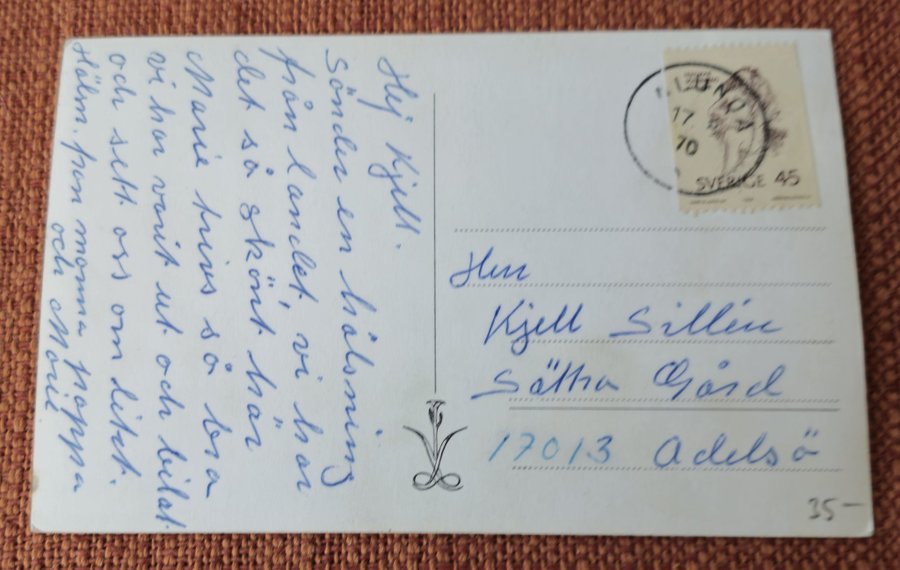 Hej Kjell.
Sänder en hälsning
från landet. vi har
det så skönt här
Marie trivs så bra
vi har varit ut och bilat
och sett oss om litet.
Hälsn. från mamma pappa
och Marie
SVERIGE 45
17
70
Herr
Kjell Sillén
Sättra Gård
17013 Adelsö
35-